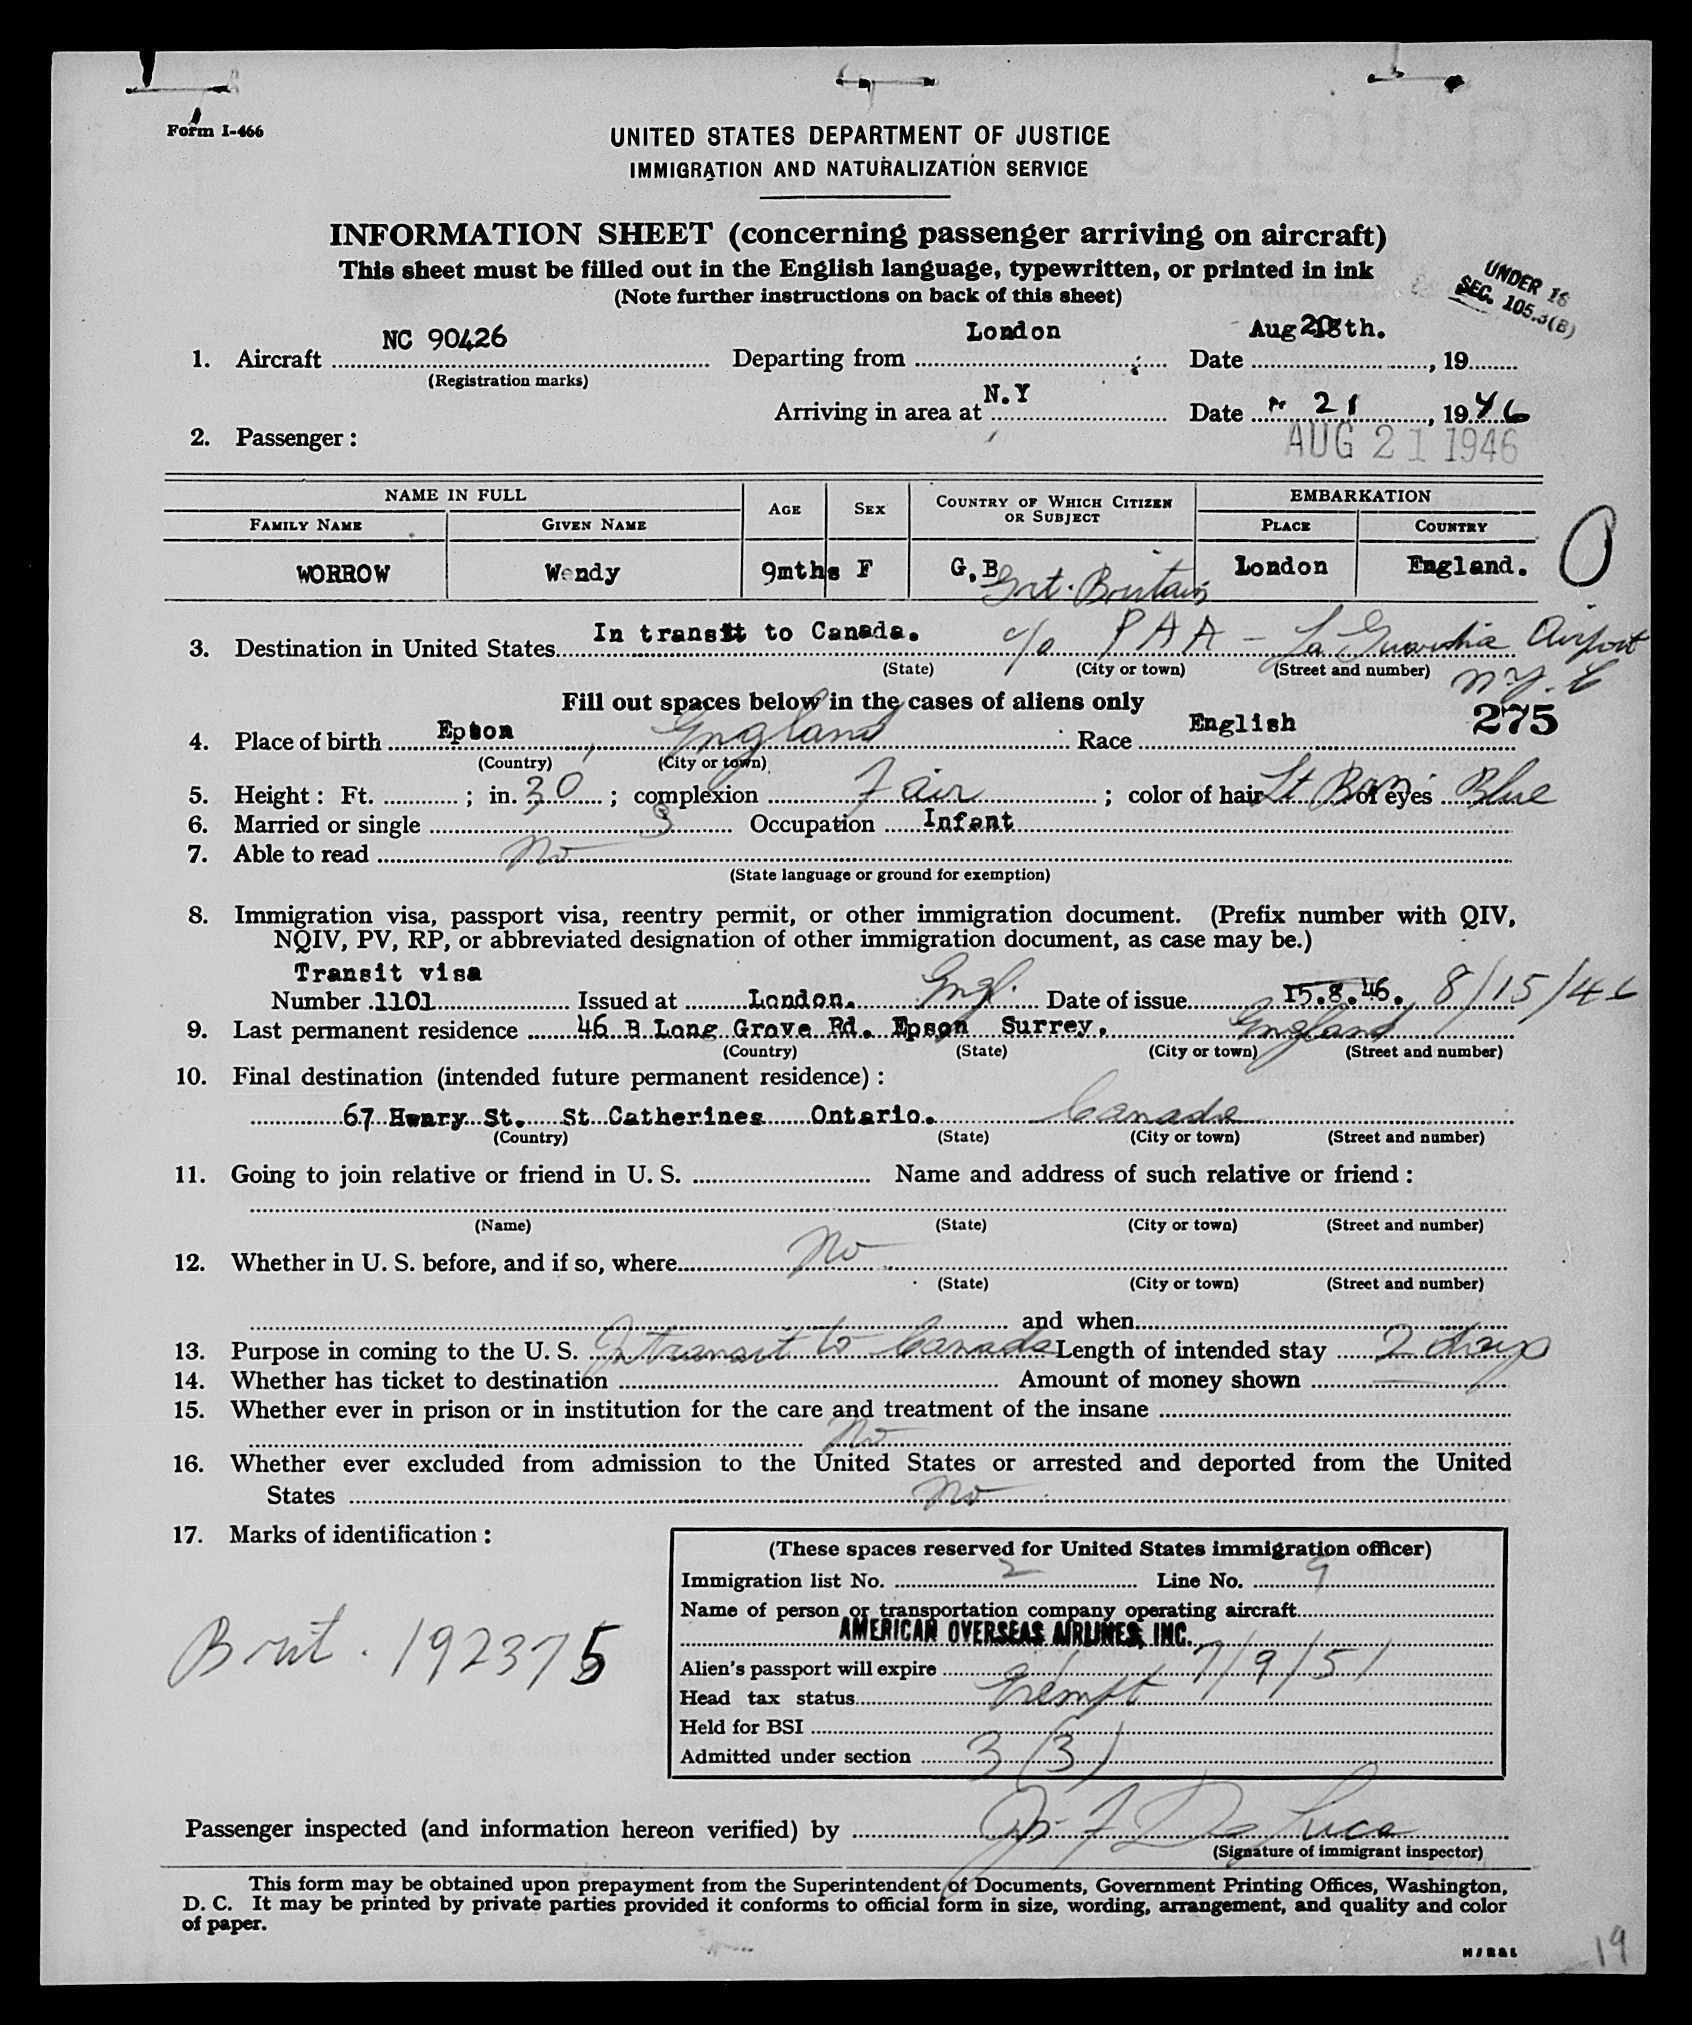 Form I-466
UNITED STATES DEPARTMENT OF JUSTICE
IMMIGRATION AND NATURALIZATION SERVICE
INFORMATION SHEET (concerning passenger arriving on aircraft)
This sheet must be filled out in the English language, typewritten, or printed in ink
(Note further instructions on back of this sheet)
UNDER 16
SEC. 105.3(B)
1. Aircraft NC 90426 Departing from London Date Aug 20th. , 19
(Registration marks)
Arriving in area at N.Y Date " 21 , 1946
AUG 21 1946
2. Passenger :
NAME IN FULL AGE SEX COUNTRY OF WHICH CITIZEN OR SUBJECT EMBARKATION
FAMILY NAME GIVEN NAME PLACE COUNTRY
WORROW Wendy 9mths F G.B Grt. Britain London England.
3. Destination in United States In transit to Canada. c/o PAA - La Guardia Airport
(State) (City or town) (Street and number) N.Y. C
Fill out spaces below in the cases of aliens only
275
4. Place of birth Epson , England Race English
(Country) (City or town)
5. Height : Ft. ; in. 30 ; complexion Fair ; color of hair Lt Brn of eyes Blue
6. Married or single S Occupation Infant
7. Able to read No
(State language or ground for exemption)
8. Immigration visa, passport visa, reentry permit, or other immigration document. (Prefix number with QIV,
NQIV, PV, RP, or abbreviated designation of other immigration document, as case may be.)
Transit visa
Number 1101 Issued at London. Engl. Date of issue 15.8.46. 8/15/46
9. Last permanent residence 46 B Long Grove Rd. Epson Surrey, England
(Country) (State) (City or town) (Street and number)
10. Final destination (intended future permanent residence) :
67 Henry St. St Catherines Ontario. Canada
(Country) (State) (City or town) (Street and number)
11. Going to join relative or friend in U. S. Name and address of such relative or friend :
(Name) (State) (City or town) (Street and number)
12. Whether in U. S. before, and if so, where No
(State) (City or town) (Street and number)
and when
13. Purpose in coming to the U. S. In transit to Canada Length of intended stay 2 days
14. Whether has ticket to destination Amount of money shown
15. Whether ever in prison or in institution for the care and treatment of the insane
No
16. Whether ever excluded from admission to the United States or arrested and deported from the United
States No
17. Marks of identification :
Brit. 192375
(These spaces reserved for United States immigration officer)
Immigration list No. 2 Line No. 9
Name of person or transportation company operating aircraft
AMERICAN OVERSEAS AIRLINES, INC.
Alien's passport will expire 7/9/51
Head tax status Exempt
Held for BSI
Admitted under section 3 (3)
Passenger inspected (and information hereon verified) by Jos F De Luca
(Signature of immigrant inspector)
This form may be obtained upon prepayment from the Superintendent of Documents, Government Printing Offices, Washington,
D. C. It may be printed by private parties provided it conforms to official form in size, wording, arrangement, and quality and color
of paper.
19